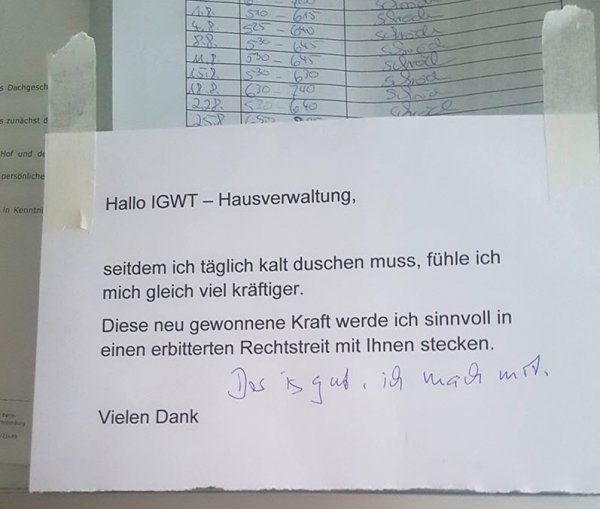 1.8. 530 – 615
4.8. 525 – 640
8.8. 530 – 645
11.8 530 – 645
15.8 530 – 630
18.8. 630 – 740
22.8. 530 – 640
25.8
s Dachgesch
s zunächst d
Hof und de
persönliche
in Kenntni
Hallo IGWT – Hausverwaltung,
seitdem ich täglich kalt duschen muss, fühle ich
mich gleich viel kräftiger.
Diese neu gewonnene Kraft werde ich sinnvoll in
einen erbitterten Rechtstreit mit Ihnen stecken.
Das is gut, ich mach mit.
Vielen Dank